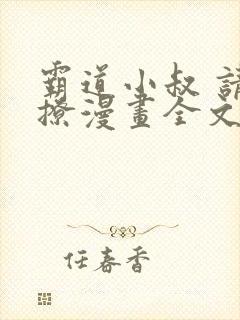 霸道小叔 請
撩漫畫全文
任春香